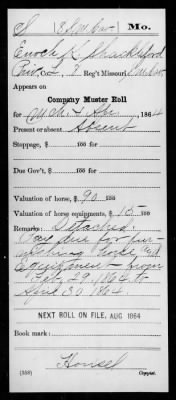 S 13 S.M. Cav. Mo.
Enoch R. Shackleford
Pvt., Co. , 8 Reg't Missouri S.M. Cav.
Appears on
Company Muster Roll
for Mch. & Apr., 1864
Present or absent Absent
Stoppage, $ 100 for
Due Gov't, $ 100 for
Valuation of horse, $ 90 100
Valuation of horse equipments, $ 15 100
Remarks: Detached.
Pay due for fur-
nishing horse and
equipments from
Feby 29, 1864 to
April 30 1864.
NEXT ROLL ON FILE, AUG 1864
Book mark:
Housel
(358) Copyist.